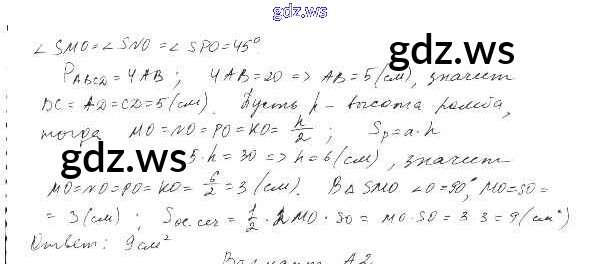 gdz.ws
∠SMO = ∠SNO = ∠SPO = 45°.
gdz.ws
P_ABCD = 4AB; 4AB = 20 => AB = 5 (см), значит
DC = AD = CD = 5 (см). Пусть h – высота ромба,
тогда MO = NO = PO = KO = h/2; Sр = a·h
gdz.ws
5·h = 30 => h = 6 (см), значит
MO = NO = PO = KO = 6/2 = 3 (см). В ΔSMO ∠O = 90°, MO = SO =
= 3 (см); Sос.сеч = 1/2 · 2MO · SO = MO·SO = 3·3 = 9 (см²)
Ответ: 9 см²
Вариант А2